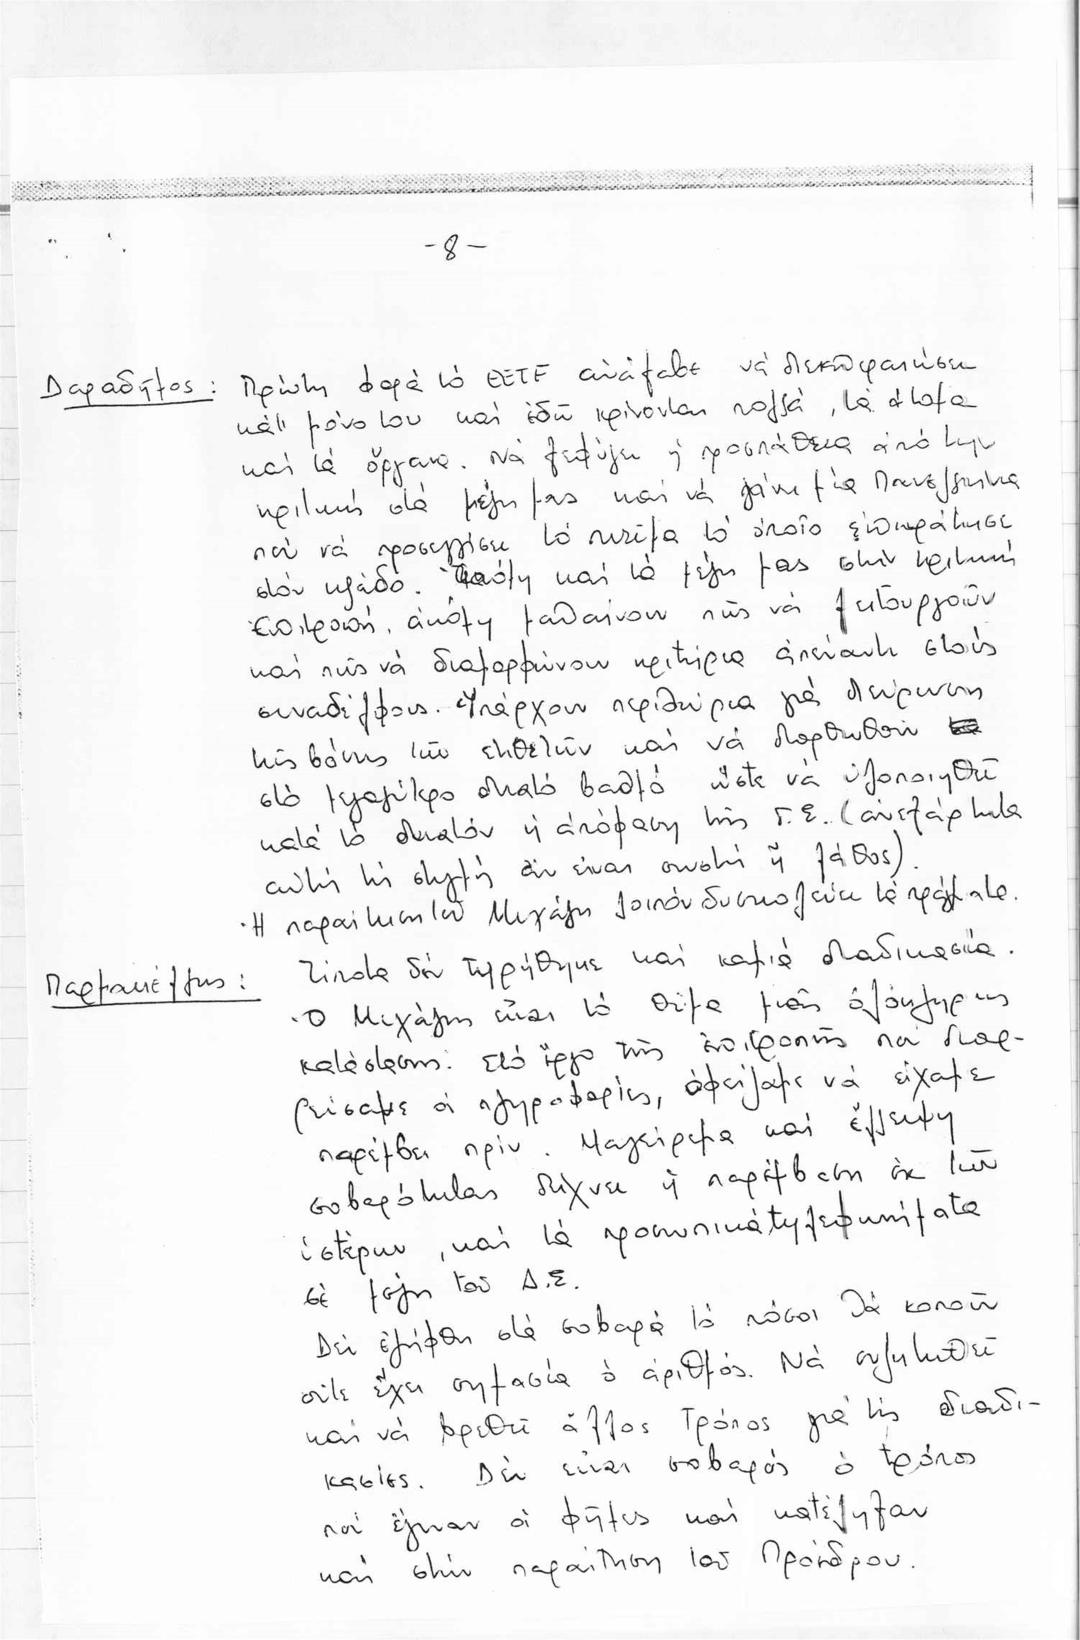 -8-
Δαραδήμος: Πρώτη φορά τό ΕΕΤΕ ἀνάλαβε νά διεκπεραιώσει
κάτι μόνο του καί ἐδῶ κρίνονται πολλά, τά ἄτομα
καί τά ὄργανα. Νά ξεφύγει ἡ προσπάθεια ἀπό τήν
κριτική στά μέλη μας καί νά γίνει μία Πανελλήνια
πού νά προσεγγίσει τό πνεῦμα τό ὁποῖο ἐπικράτησε
στόν κλάδο. Ἀκόμη καί τά μέλη μας στήν κριτική
ἐπιτροπή, ἀκόμη μαθαίνουν πῶς νά λειτουργοῦν
καί πῶς νά διαμορφώνουν κριτήρια ἀπέναντι στούς
συναδέλφους. Ὑπάρχουν περιθώρια γιά διεύρυνση
τῆς βάσης τῶν ἐκθετῶν καί νά διορθωθοῦν
στό μεγαλύτερο δυνατό βαθμό ὥστε νά ὑλοποιηθεῖ
κατά τό δυνατόν ἡ ἀπόφαση τῆς Γ.Σ. (ἀνεξάρτητα
αὐτή τή στιγμή ἄν εἶναι σωστή ἤ λάθος).
Ἡ παραίτηση τοῦ Μιχάλη λοιπόν δυσκολεύει τά πράγματα.
Παρμακέλης: Τίποτα δέν τηρήθηκε καί καμιά διαδικασία.
Ὁ Μιχάλης εἶναι τό θύμα μιᾶς ὁλόκληρης
κατάστασης. Στό ἔργο τῆς ἐπιτροπῆς πού διαρ-
ρεύσαμε οἱ πληροφορίες, ὀφείλαμε νά εἴχαμε
παρέμβει πρίν. Μαγείρεμα καί ἔλλειψη
σοβαρότητας δείχνει ἡ παρέμβαση ἐκ τῶν
ὑστέρων, καί τά προσωπικά τηλεφωνήματα
σέ μέλη τοῦ Δ.Σ.
Δέν ἐλήφθη στά σοβαρά τό πόσοι θά κοποῦν
οὔτε ἔχει σημασία ὁ ἀριθμός. Νά συζητηθεῖ
καί νά βρεθεῖ ἄλλος τρόπος γιά τίς διαδι-
κασίες. Δέν εἶναι σοβαρός ὁ τρόπος
πού ἔγιναν οἱ φῆμες καί κατέληξαν
καί στήν παραίτηση τοῦ Προέδρου.